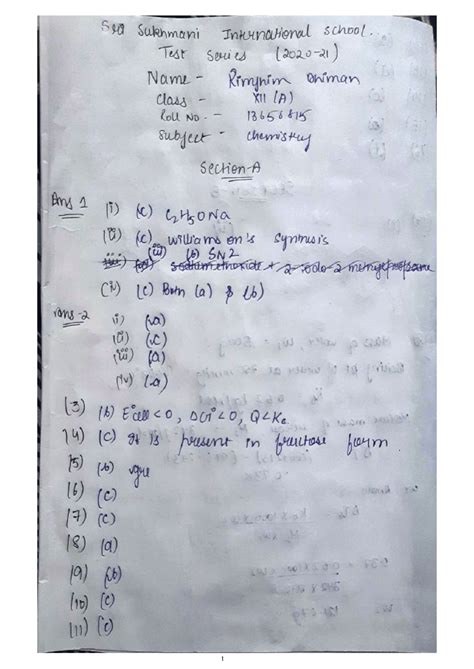 Sukhmani International school.
Test Series (2020-21)
Name - Rimjhim Dhiman
Class - XII (A)
Roll No. - 13656815
Subject - Chemistry
Section-A
Ans 1 (i) (c) C2H5ONa
(ii) (c) Williamson's Synthesis
(iii) (b) SN2
(v) (c) Both (a) & (b)
Ans-2 i) (a)
(ii) (c)
(iii) (a)
(iv) (a)
(3) (b) E°cell < 0, ΔG° < 0, Q < Kc
(4) (c) It is present in fructose form
(5) (b)
(6) (c)
(7) (c)
(8) (a)
(9) (b)
(10) (c)
(11) (c)
1